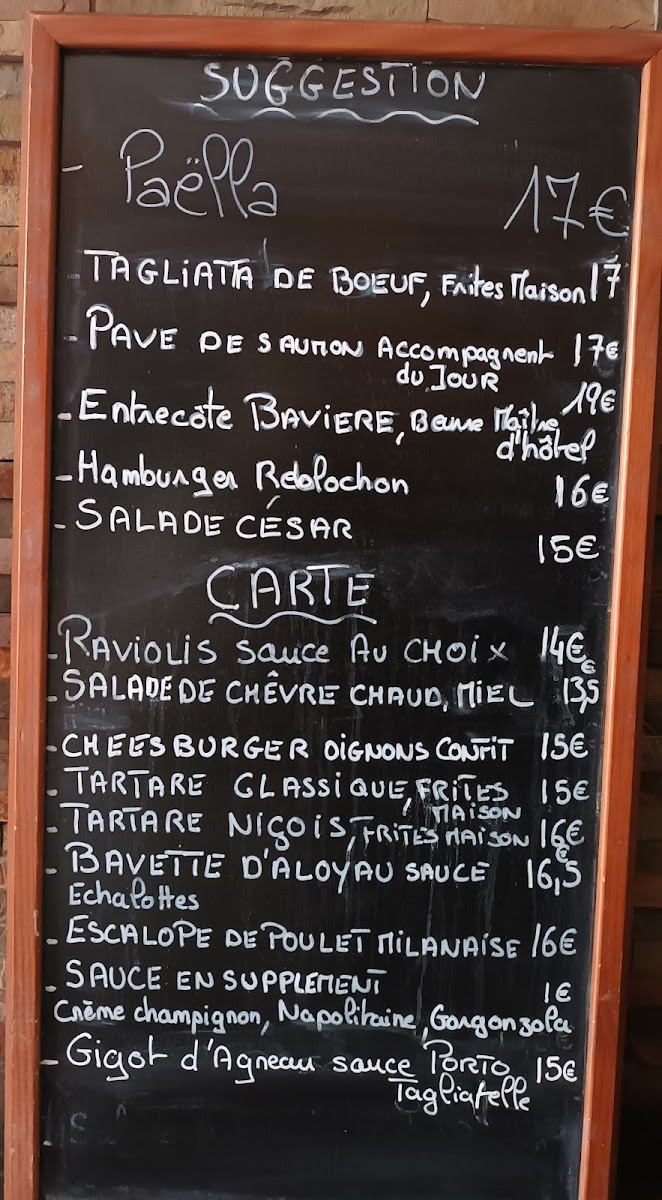 SUGGESTION
- Paëlla 17€
- TAGLIATTA DE BOEUF, Frites Maison 17
- PAVE DE SAUMON Accompagnent 17€
du JOUR
19€
- Entrecôte BAVIERE, Beurre Maître
d'hôtel
- Hamburger Reblochon 16€
- SALADE CÉSAR 15€
CARTE
- RAVIOLIS SAUCE AU CHOIX 14€
- SALADE DE CHÊVRE CHAUD, MIEL 13,5€
- CHEESBURGER OIGNONS CONFIT 15€
- TARTARE CLASSIQUE, FRITES 15€
MAISON
- TARTARE NIÇOIS, FRITES MAISON 16€
- BAVETTE D'ALOYAU SAUCE 16,5€
Echalottes
- ESCALOPE DE POULET MILANAISE 16€
- SAUCE EN SUPPLEMENT 1€
Crème champignon, Napolitaine, Gorgonzola
- Gigot d'Agneau sauce PORTO 15€
Tagliatelle